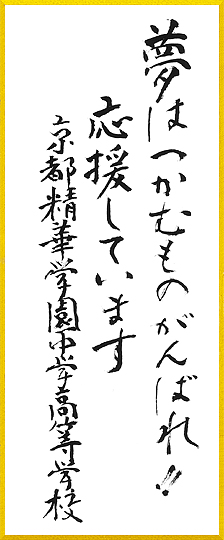 夢はつかむものがんばれ!!
応援しています
京都精華学園中学高等学校